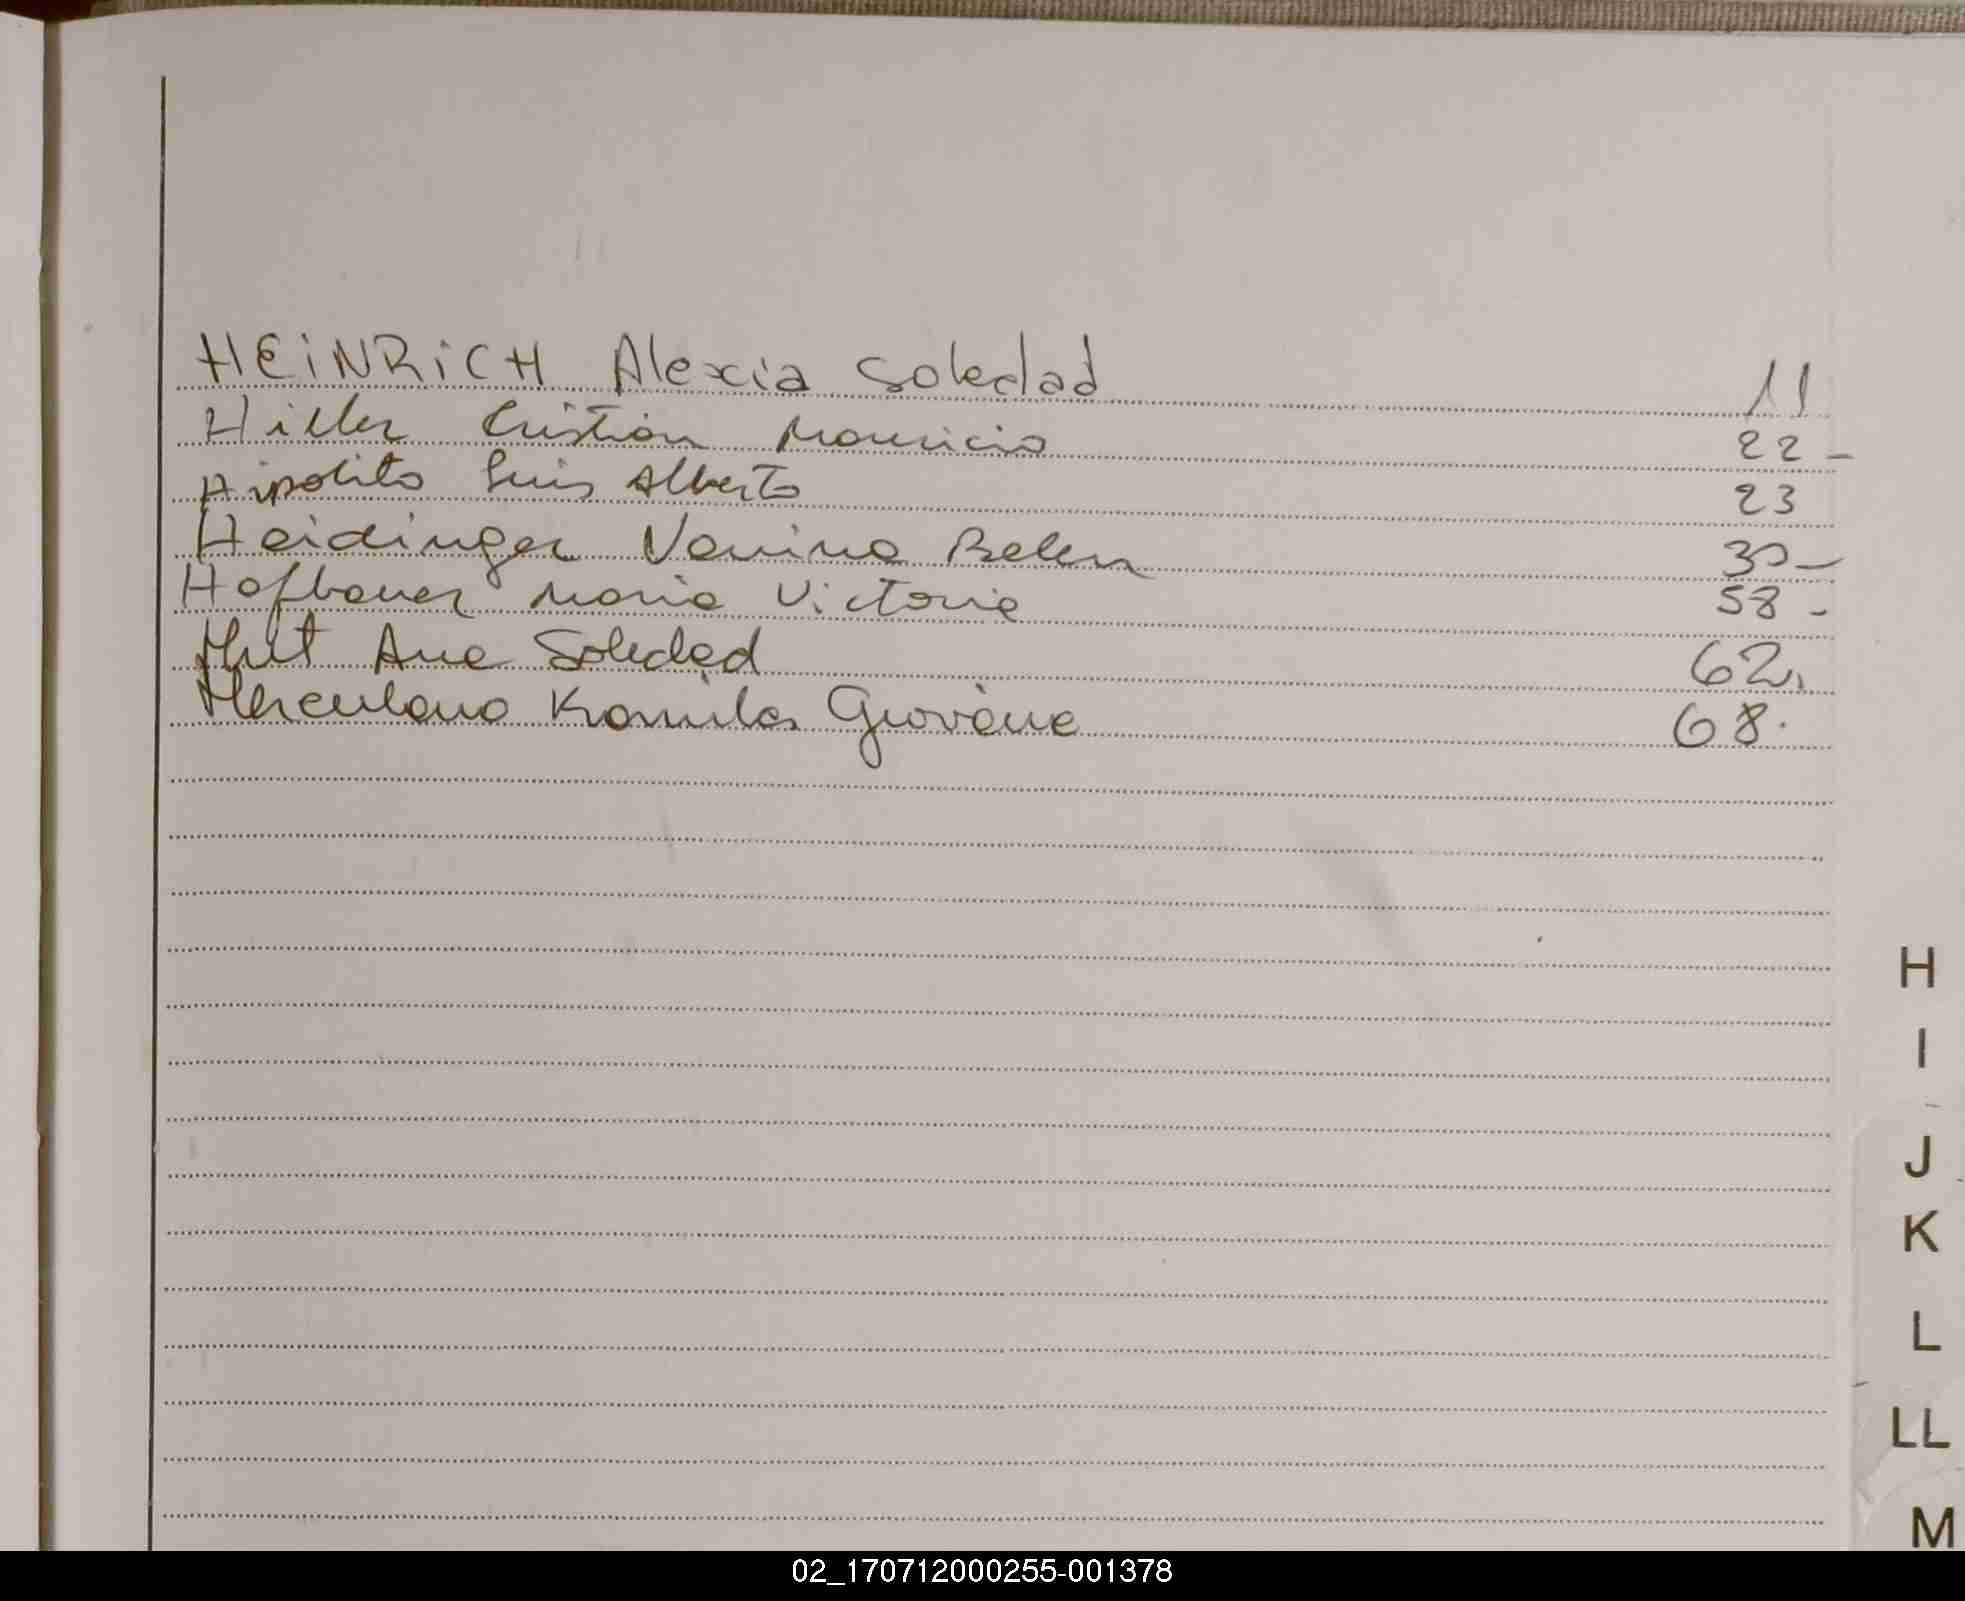 HEINRICH Alexia Soledad 11
Hiller Cristian Mauricio 22 -
Hipolito Luis Alberto 23
Heidinger Vanina Belen 30 -
Hofbauer Maria Victoria 58 -
Hut Ana Soledad 62.
Herculano Kamila Giovana 68.
H
I
J
K
L
LL
M
02_170712000255-001378